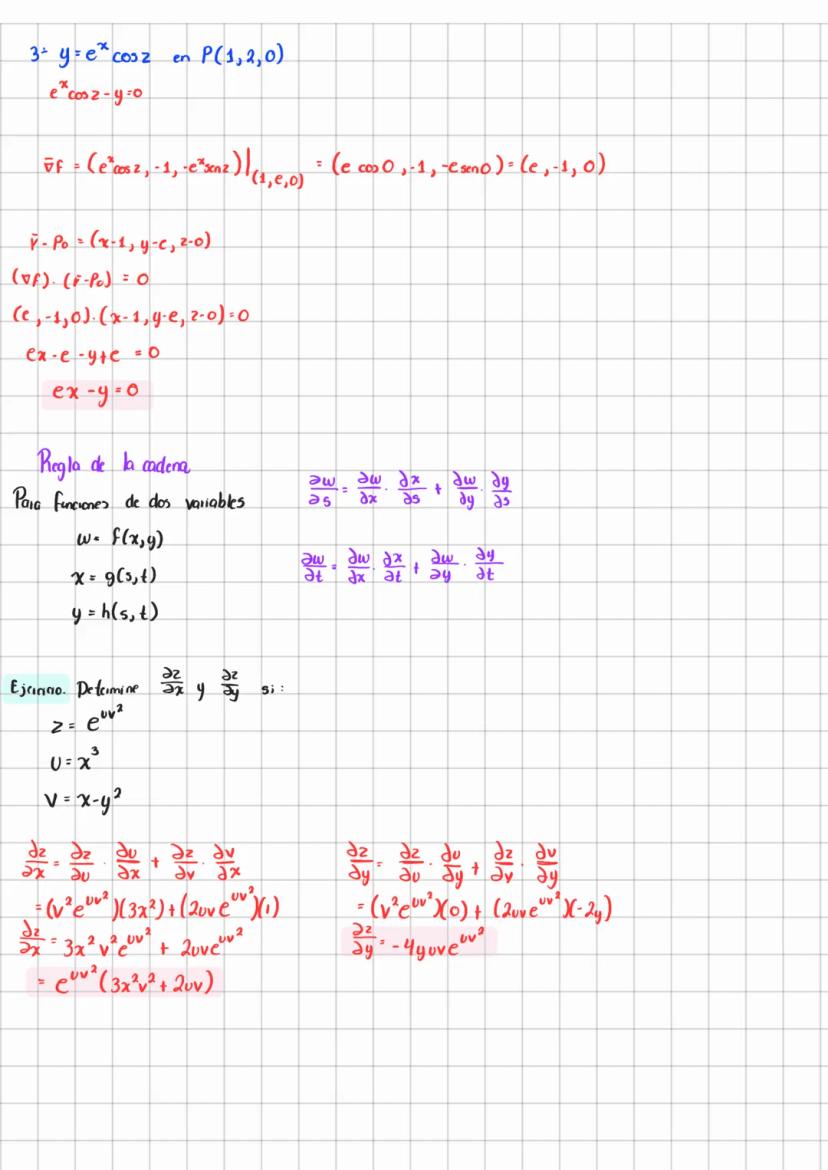 3- y = e^x cos z en P(1,2,0)
e^x cos z - y = 0
∇̄f = (e^x cos z, -1, -e^x sen z)|_(1,e,0) = (e cos 0, -1, -e sen 0) = (e, -1, 0)
r̄ - P₀ = (x-1, y-e, z-0)
(∇f) · (r̄ - P₀) = 0
(e, -1, 0) · (x-1, y-e, z-0) = 0
ex - e - y + e = 0
ex - y = 0
Regla de la cadena
Para funciones de dos variables
w = f(x,y)
x = g(s,t)
y = h(s,t)
∂w/∂s = ∂w/∂x · ∂x/∂s + ∂w/∂y · ∂y/∂s
∂w/∂t = ∂w/∂x · ∂x/∂t + ∂w/∂y · ∂y/∂t
Ejercicio. Determine ∂z/∂x y ∂z/∂y si:
z = e^(uv²)
u = x³
v = x - y²
∂z/∂x = ∂z/∂u · ∂u/∂x + ∂z/∂v · ∂v/∂x
= (v² e^(uv²))(3x²) + (2uv e^(uv²))(1)
∂z/∂x = 3x² v² e^(uv²) + 2uv e^(uv²)
= e^(uv²) (3x²v² + 2uv)
∂z/∂y = ∂z/∂u · ∂u/∂y + ∂z/∂v · ∂v/∂y
= (v² e^(uv²))(0) + (2uv e^(uv²))(-2y)
∂z/∂y = -4yuv e^(uv²)